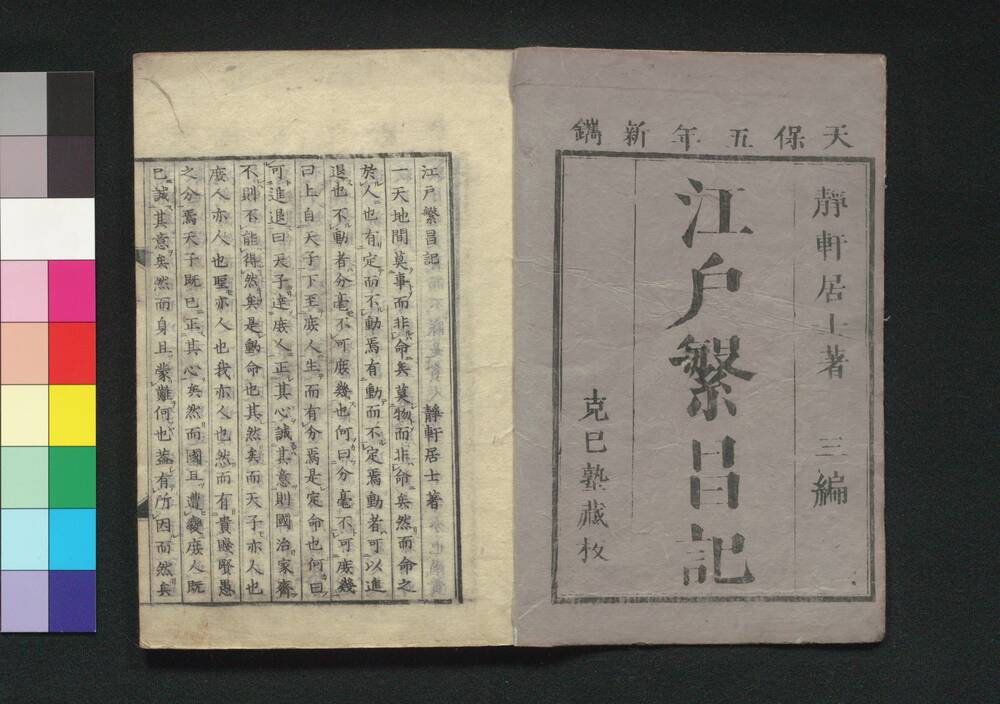 天保五年新鐫
靜軒居士著 三編
江戸繁昌記
克己塾藏梓
江戸繁昌記
靜軒居士著
一天地間莫事而非命矣莫物而非命矣然而命之
於人也有定而不動焉有動而不定焉動者可以進
退也不動者分毫不可庶幾也何曰分毫不可庶幾
曰上自天子下至庶人生而有分焉是定命也何曰
可進退曰天子達庶人正其心誠其意則國治家齊
不則不能得然矣是動命也其然矣而天子亦人也
庶人亦人也聖亦人也我亦人也然而有貴賤賢愚
之分焉天子既已正其心矣然而國且遭變庶人既
已誠其意矣然而身且蒙難何也蓋有所因而然矣